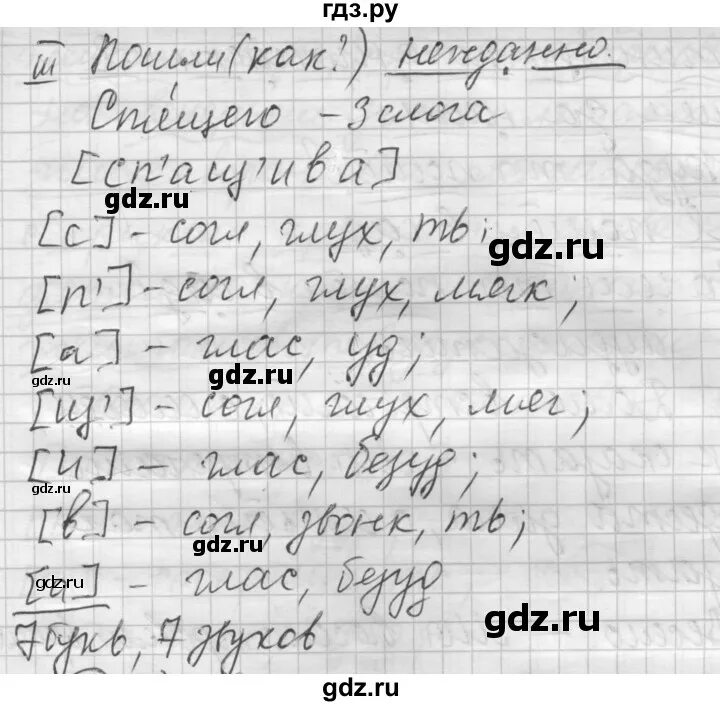 гдз.ру
III Пошли (как?) нежданно.
Спящего – 3 слога
[сп'ащ'ива]
gdz.ru
[с] – согл, глух, тв;
gdz.ru
[п'] – согл, глух, мягк;
[а] – глас, уд;
gdz.ru
gdz.ru
[щ'] – согл, глух, мяг;
[и] – глас, безуд;
gdz.ru
[в] – согл, звонк, тв;
gdz.ru
[а] – глас, безуд
gdz.ru
gdz.ru
7 букв, 7 звуков
gdz.ru